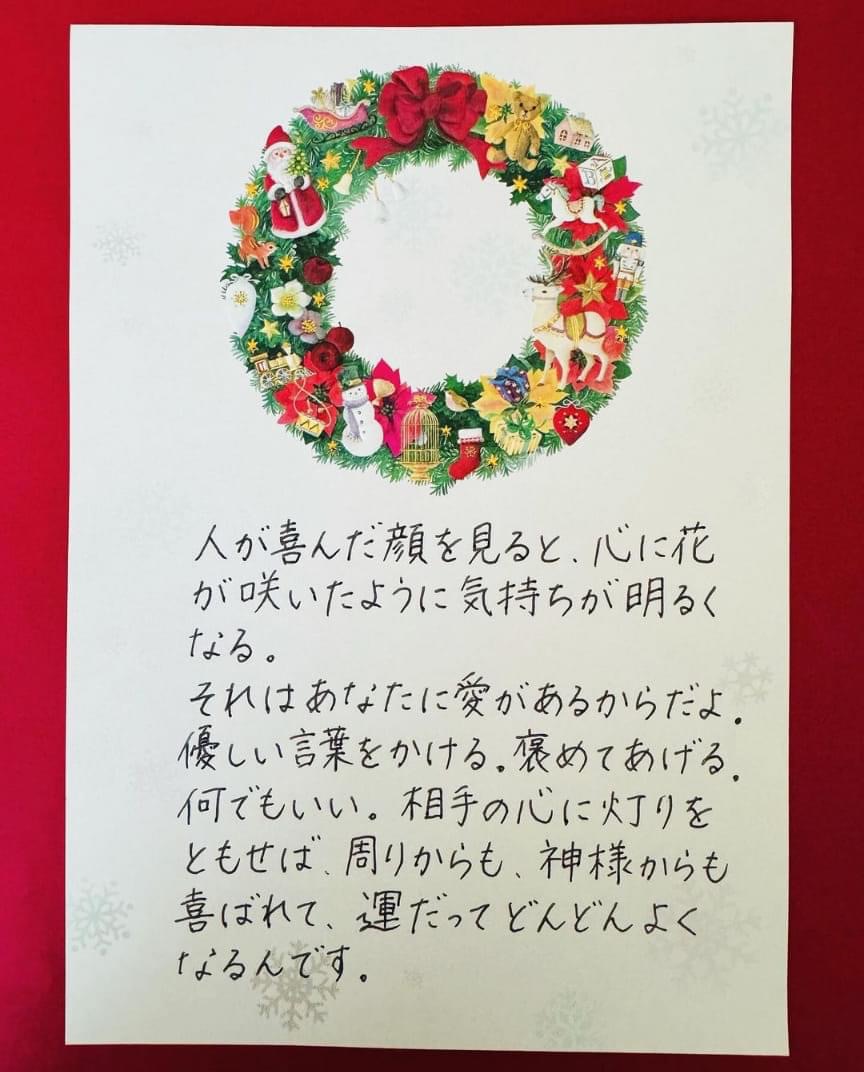 人が喜んだ顔を見ると、心に花
が咲いたように気持ちが明るく
なる。
それはあなたに愛があるからだよ。
優しい言葉をかける。褒めてあげる。
何でもいい。相手の心に灯りを
ともせば、周りからも、神様からも
喜ばれて、運だってどんどんよく
なるんです。